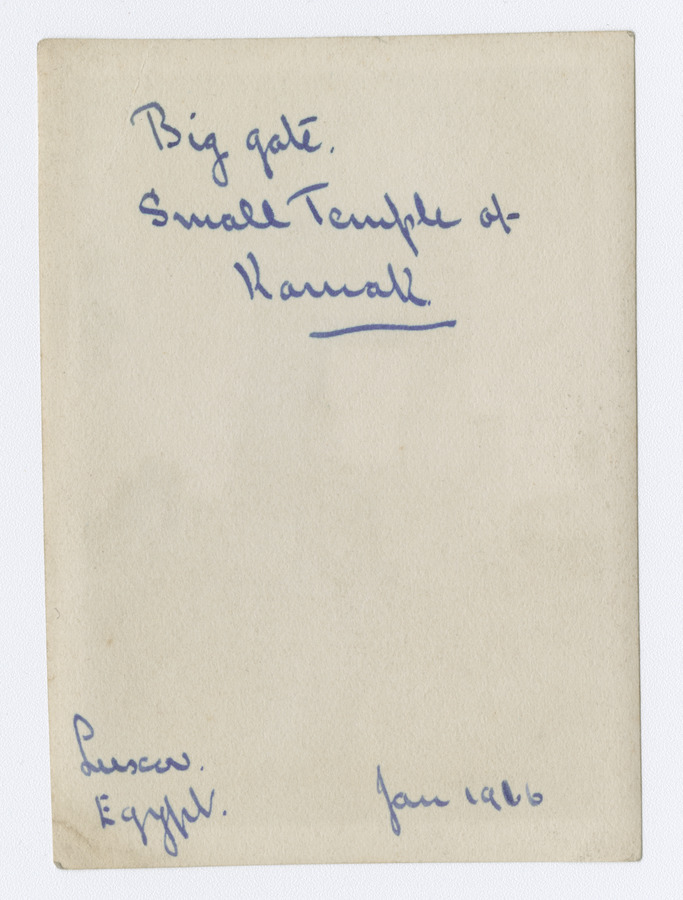 Big gate.
Small Temple of
Karnak.
Luxor.
Egypt.
Jan 1916